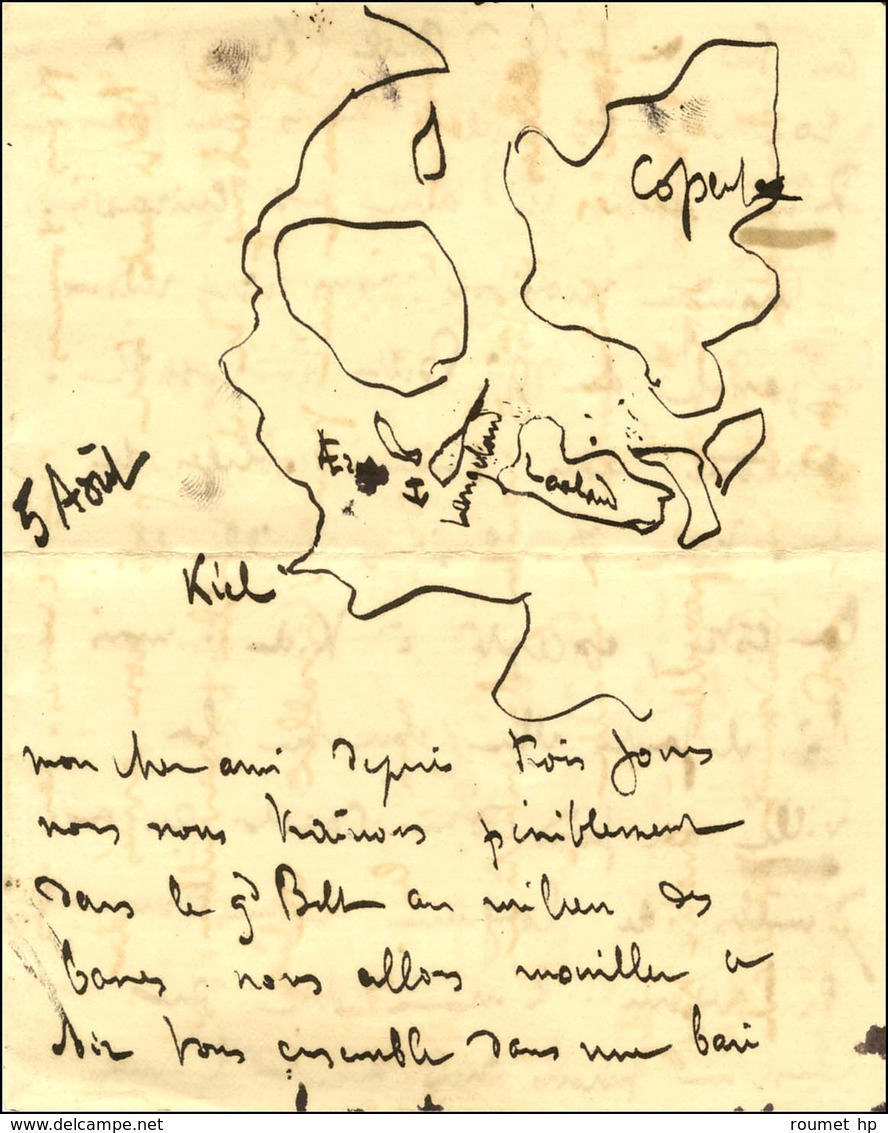 Copenh
5 Août
Langelan
Laaland
Kiel
mon cher ami depuis trois Jours
nous nous traînons péniblement
dans le gd Belt au milieu des
bancs nous allons mouiller ce
soir tous ensemble dans une baie
www.delcampe.net
roumet hp